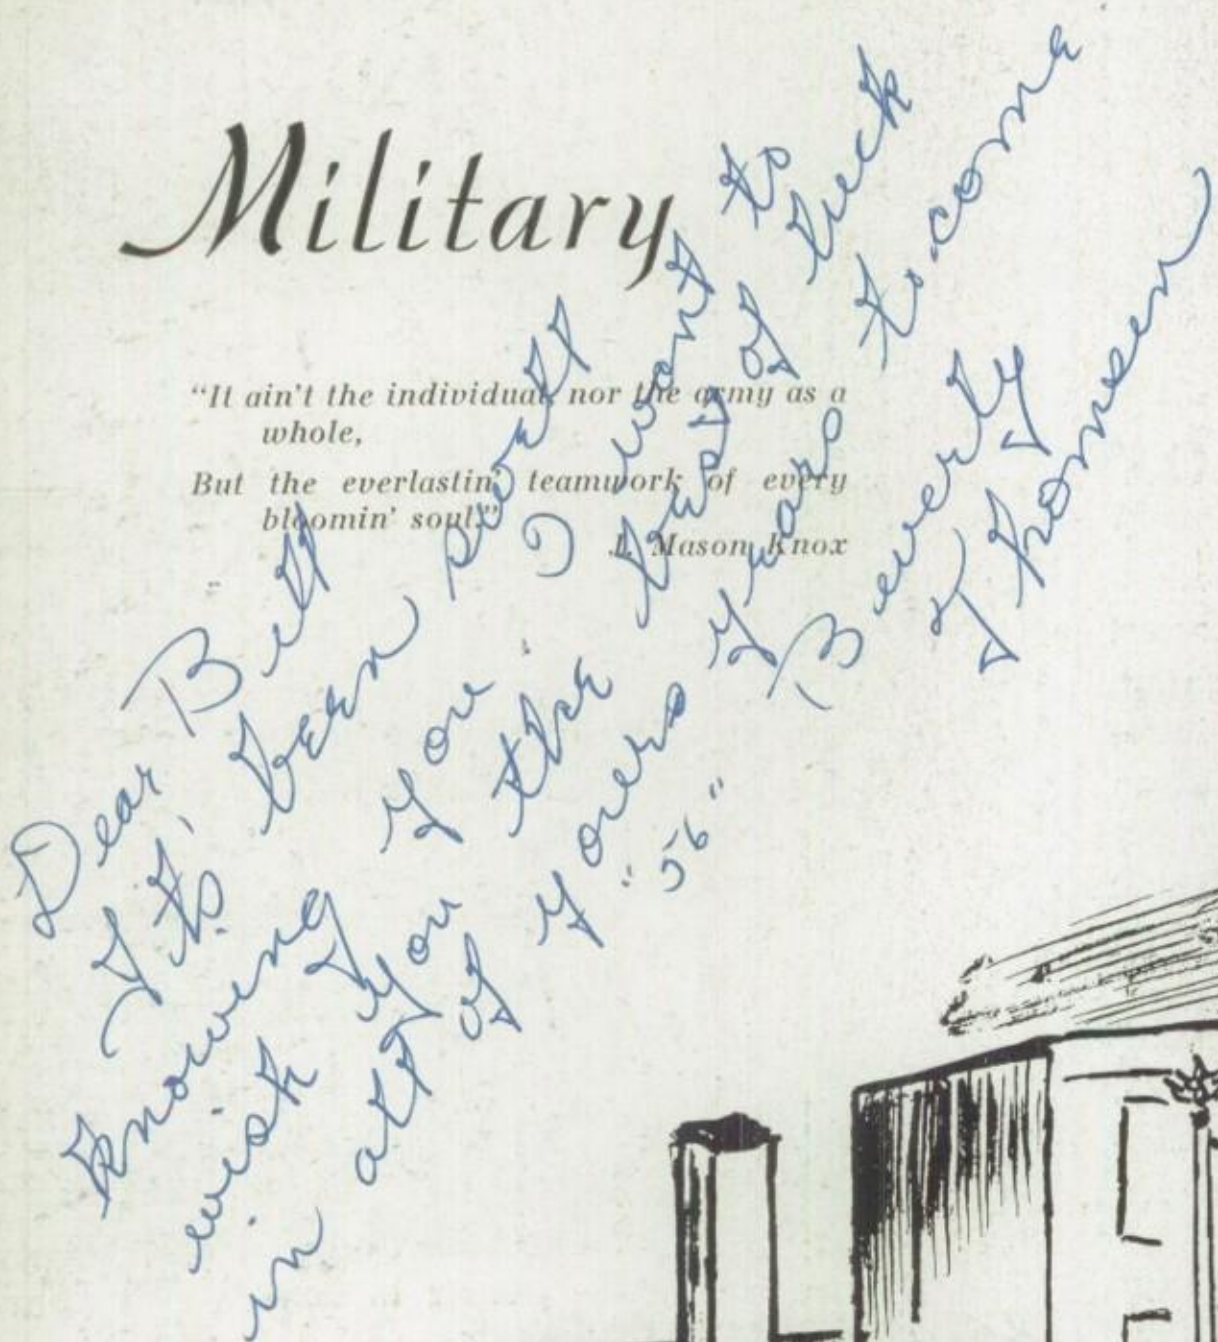 Military
"It ain't the individual nor the army as a
whole,
But the everlastin' teamwork of every
bloomin' soul."
J. Mason Knox
Dear Bill
It's been swell
knowing you. I want to
wish you the best of luck
in all of yours years to come
Beverly
Thomsen
"56"